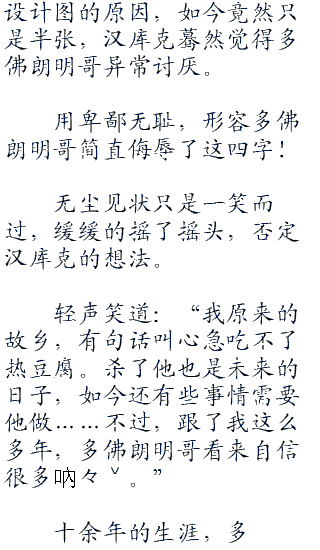 设计图的原因，如今竟然只
是半张，汉库克蓦然觉得多
佛朗明哥异常讨厌。
用卑鄙无耻，形容多佛
朗明哥简直侮辱了这四字！
无尘见状只是一笑而
过，缓缓的摇了摇头，否定
汉库克的想法。
轻声笑道：“我原来的
故乡，有句话叫心急吃不了
热豆腐。杀了他也是未来的
日子，如今还有些事情需要
他做……不过，跟了我这么
多年，多佛朗明哥看来自信
很多呐々ˇ。”
十余年的生涯，多